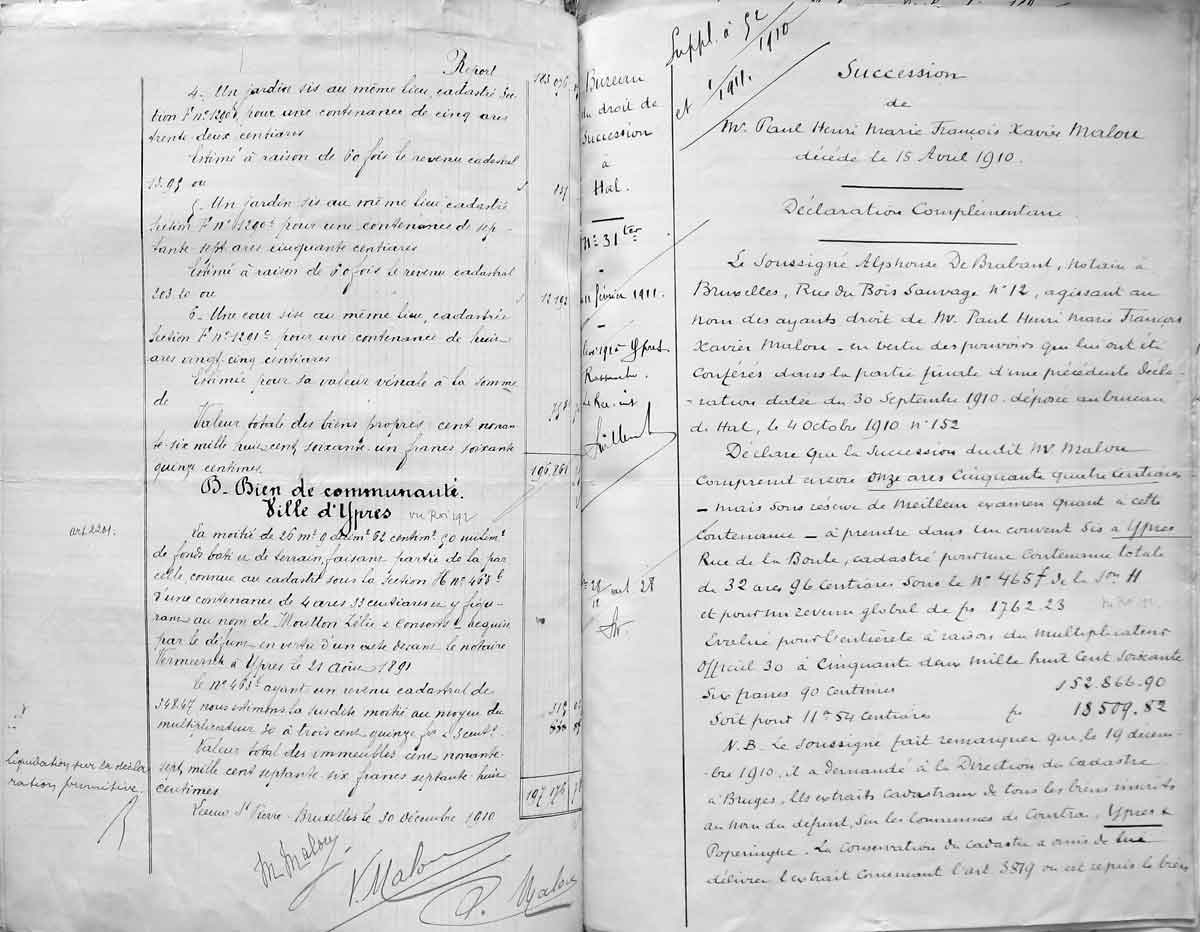 Report
4. Un jardin sis au même lieu, cadastré Sec-
tion F n° 1290 pour une contenance de cinq ares
trente-deux centiares
Estimé à raison de 60 fois le revenu cadastral
ou
5. Un jardin sis au même lieu cadastré
Section F n° 1290 pour une contenance de sep-
tante-sept ares cinquante centiares
Estimé à raison de 60 fois le revenu cadastral
203.20 ou 12192
6. Une cour sise au même lieu, cadastrée
Section F n° 1291 pour une contenance de huit
ares vingt cinq centiares
Estimée pour sa valeur vénale à la somme
de
Valeur totale des biens propres, cent nonan-
te-six mille huit cent soixante un francs soixante
quinze centimes 196.861
B. Bien de communauté.
Ville d'Ypres
art 2201.
La moitié de 26 m. 0 décim. 62 centim. 50 millim.
de fonds bâti et de terrain, faisant partie de la par-
celle, connue au cadastre sous la Section H n° 465
d'une contenance de 4 ares 33 centiares et y figu-
rant au nom de Moutton Lélie & consorts, acquis
par le défunt en vertu d'un acte devant le notaire
Vermeersch à Ypres le 21 Août 1891
le N° 465 ayant un revenu cadastral de
348.47 nous estimons la susdite moitié au moyen du
multiplicateur 30 à trois cent quinze frs 23 cents.
Valeur total des immeubles cent nonante
sept mille cent septante six francs septante huit
centimes 197.176 78
Liquidation sur la décla-
ration primitive.
Leeuw St Pierre - Bruxelles le 30 Décembre 1910
M. Malou
V. Malou
P. Malou
Suppl. à 52/1910
et 1/1911.
Bureau
du droit de
Succession
à
Hal.
N° 31 ter
11 février 1911.
Ypres
art 28
Succession
de
Mr. Paul Henri Marie François Xavier Malou
décédé le 15 Avril 1910.
Déclaration Complémentaire
Le Soussigné Alphonse De Brabant, Notaire à
Bruxelles, Rue du Bois Sauvage N° 12, agissant au
nom des ayants droit de Mr. Paul Henri Marie François
Xavier Malou - en vertu des pouvoirs qui lui ont été
Conférés dans la partie finale d'une précédente Décla-
-ration datée du 30 Septembre 1910 déposée au bureau
de Hal, le 4 Octobre 1910 n° 152
Déclare que la Succession dudit Mr. Malou
Comprend encore Onze ares Cinquante quatre Centiares
- mais sous réserve de Meilleur examen quant à cette
Contenance - à prendre dans un couvent sis à Ypres
Rue de la Boule, cadastré pour une Contenance totale
de 32 ares 96 Centiares sous le N° 465f de la Son H
et pour un revenu global de fs 1762.23
Evalué pour l'entièreté à raison du multiplicateur
Officiel 30 à Cinquante deux mille huit Cent Soixante
Six francs 90 Centimes 52.866.90
Soit pour 11 a 54 Centiares fs 18509.82
N.B. Le Soussigné fait remarquer que le 19 décem-
-bre 1910, il a demandé à la Direction du Cadastre
à Bruges, les extraits Cadastraux de tous les biens inscrits
au nom du défunt, sur les Communes de Courtrai, Ypres &
Poperinghe. La Conservation du Cadastre a omis de lui
délivrer l'extrait concernant l'art. 3819 où est repris le bien